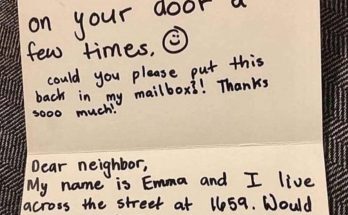 on your door a
few times. ☺
could you please put this
back in my mailbox?! Thanks
sooo much!
Dear neighbor,
My name is Emma and I live
across the street at 1659. Would